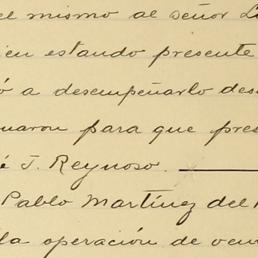 el mismo al señor
ien estando presente
ó a desempeñarlo des
naron para que pres
é J. Reynoso.
Pablo Martínez del
la operación de ven